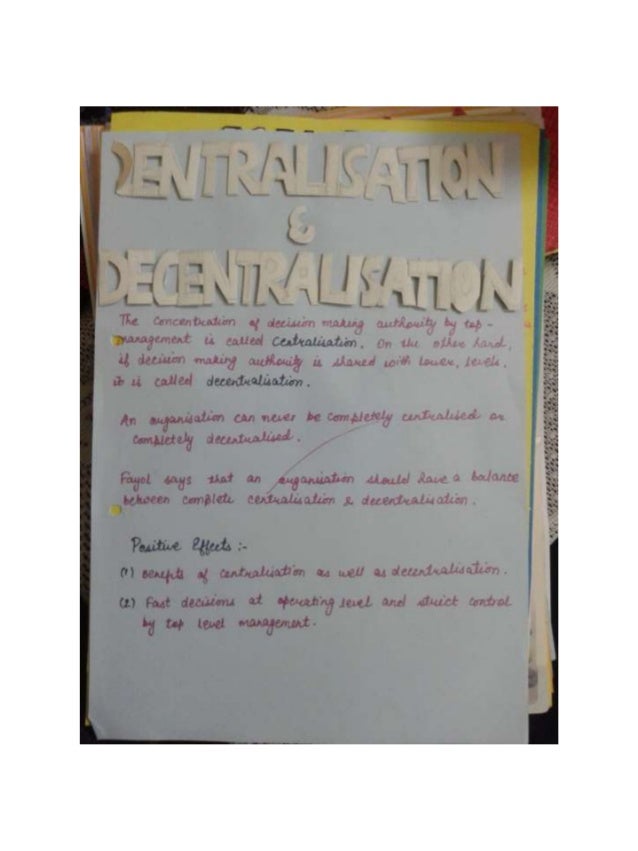 CENTRALISATION
&
DECENTRALISATION
The concentration of decision making authority by top-
management is called Centralisation. On the other hand,
if decision making authority is shared with lower, levels,
it is called decentralisation.
An organisation can never be completely centralised or
completely decentralised.
Fayol says that an organisation should have a balance
between complete centralisation & decentralisation.
Positive Effects :-
(1) Benefits of centralisation as well as decentralisation.
(2) Fast decisions at operating level and strict control
by top level management.